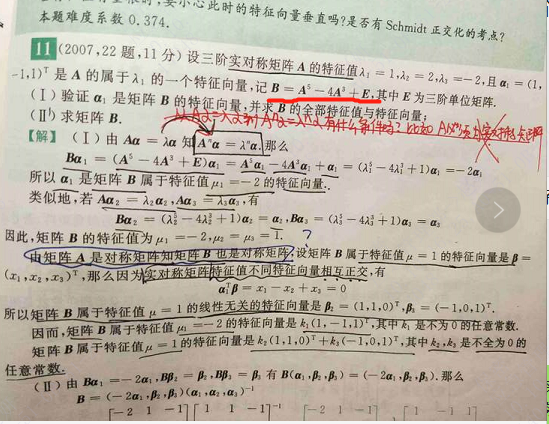 本题难度系数 0.374.
11 (2007,22题,11分) 设三阶实对称矩阵 A 的特征值 λ₁ = 1,λ₂ = 2,λ₃ = -2,且 α₁ = (1,
-1,1)ᵀ 是 A 的属于 λ₁ 的一个特征向量,记 B = A⁵ - 4A³ + E,其中 E 为三阶单位矩阵.
(Ⅰ) 验证 α₁ 是矩阵 B 的特征向量,并求 B 的全部特征值与特征向量;
(Ⅱ) 求矩阵 B.
【解】 (Ⅰ) 由 Aα = λα 知 Aⁿα = λⁿα. 那么
Bα₁ = (A⁵ - 4A³ + E)α₁ = A⁵α₁ - 4A³α₁ + α₁ = (λ₁⁵ - 4λ₁³ + 1)α₁ = -2α₁
所以 α₁ 是矩阵 B 属于特征值 μ₁ = -2 的特征向量.
类似地,若 Aα₂ = λ₂α₂,Aα₃ = λ₃α₃,有
Bα₂ = (λ₂⁵ - 4λ₂³ + 1)α₂ = α₂,Bα₃ = (λ₃⁵ - 4λ₃³ + 1)α₃ = α₃
因此,矩阵 B 的特征值为 μ₁ = -2,μ₂ = μ₃ = 1. ?
由矩阵 A 是对称矩阵知矩阵 B 也是对称矩阵,设矩阵 B 属于特征值 μ = 1 的特征向量是 β =
(x₁,x₂,x₃)ᵀ,那么因为实对称矩阵特征值不同特征向量相互正交,有
α₁ᵀβ = x₁ - x₂ + x₃ = 0
所以矩阵 B 属于特征值 μ = 1 的线性无关的特征向量是 β₂ = (1,1,0)ᵀ,β₃ = (-1,0,1)ᵀ.
因而,矩阵 B 属于特征值 μ₁ = -2 的特征向量是 k₁(1,-1,1)ᵀ,其中 k₁ 是不为 0 的任意常数.
矩阵 B 属于特征值 μ = 1 的特征向量是 k₂(1,1,0)ᵀ + k₃(-1,0,1)ᵀ,其中 k₂,k₃ 是不全为 0 的
任意常数.
(Ⅱ) 由 Bα₁ = -2α₁,Bβ₂ = β₂,Bβ₃ = β₃ 有 B(α₁,β₂,β₃) = (-2α₁,β₂,β₃). 那么
B = (-2α₁,β₂,β₃)(α₁,α₂,α₃)⁻¹